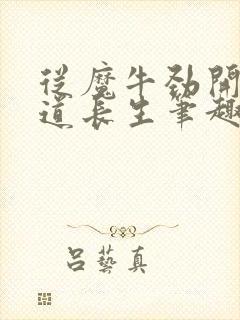 從魔牛勁開
道長生筆趣
呂藝真